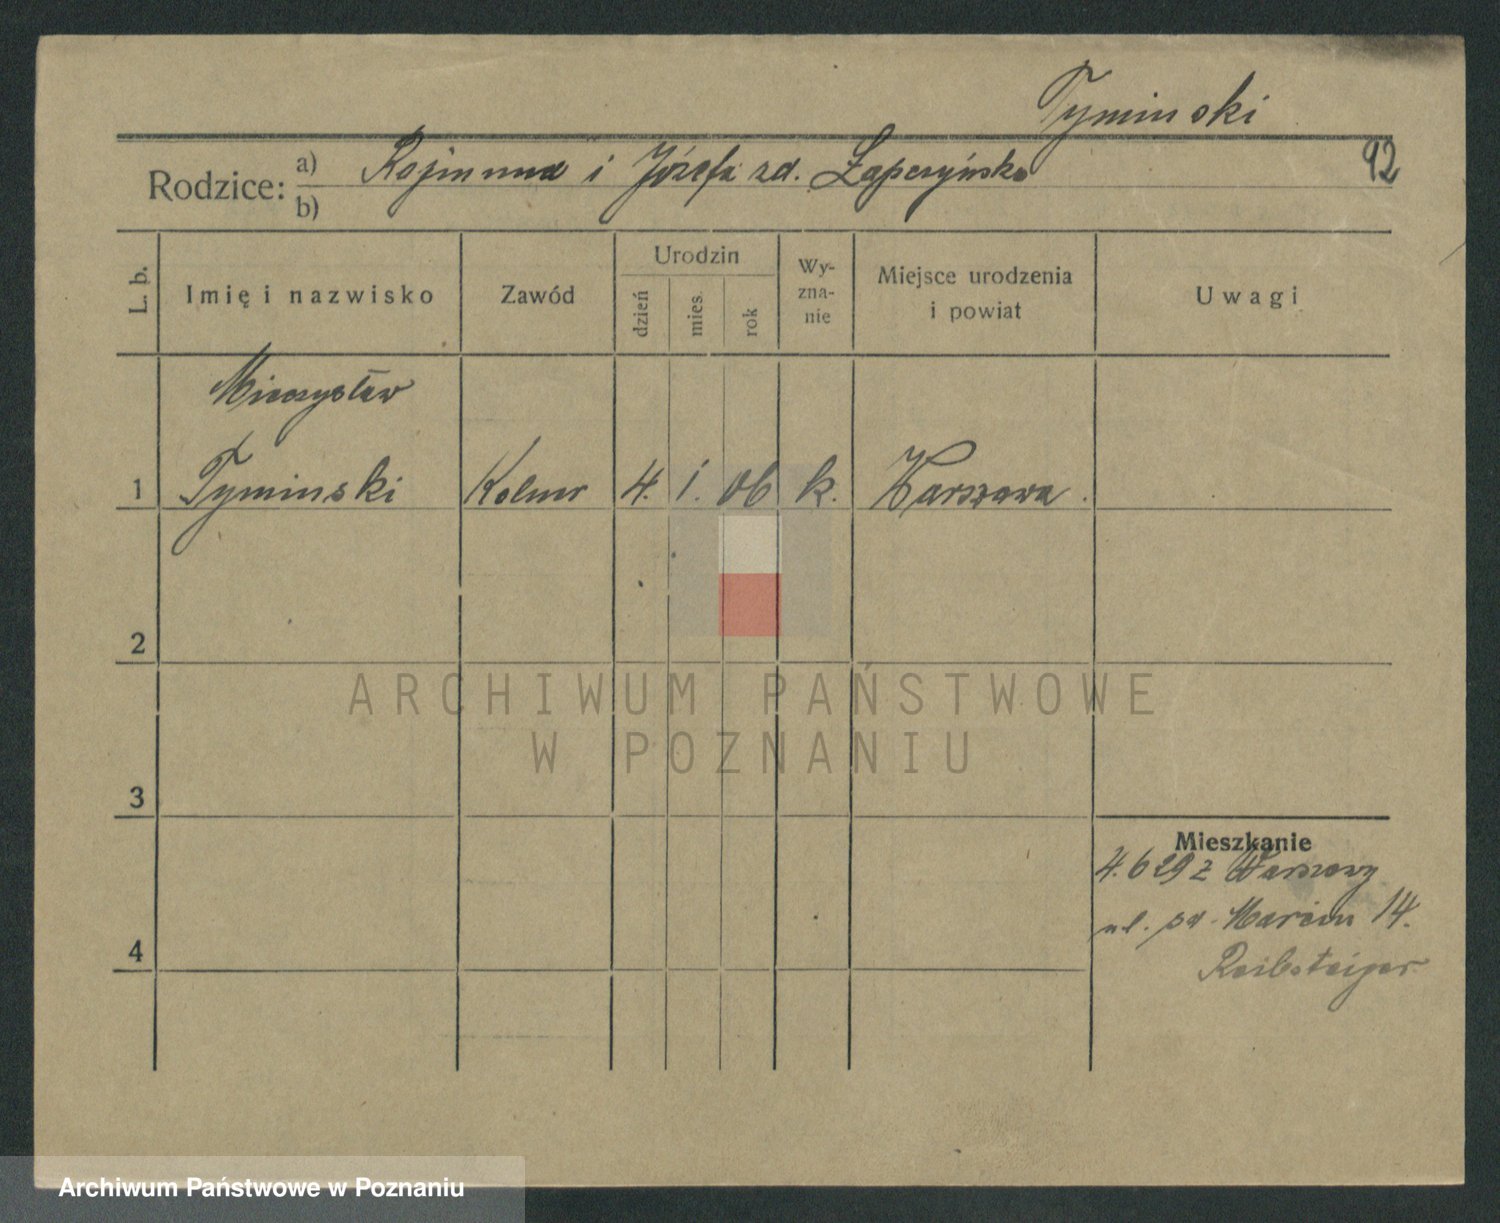 Tyminski
92
Rodzice: a) Rajmund i Józefa zd. Łapczyńska
b)
L. b.
Imię i nazwisko
Zawód
Urodzin
dzień
mies.
rok
Wy-
zna-
nie
Miejsce urodzenia
i powiat
Uwagi
Mieczysław
1 Tyminski Kelner 4. 1. 06 k. Warszawa.
2
ARCHIWUM PAŃSTWOWE
W POZNANIU
3
Mieszkanie
4.6 29 z Warszawy
ul. św. Marcin 14.
4
Reibsteiger
Archiwum Państwowe w Poznaniu